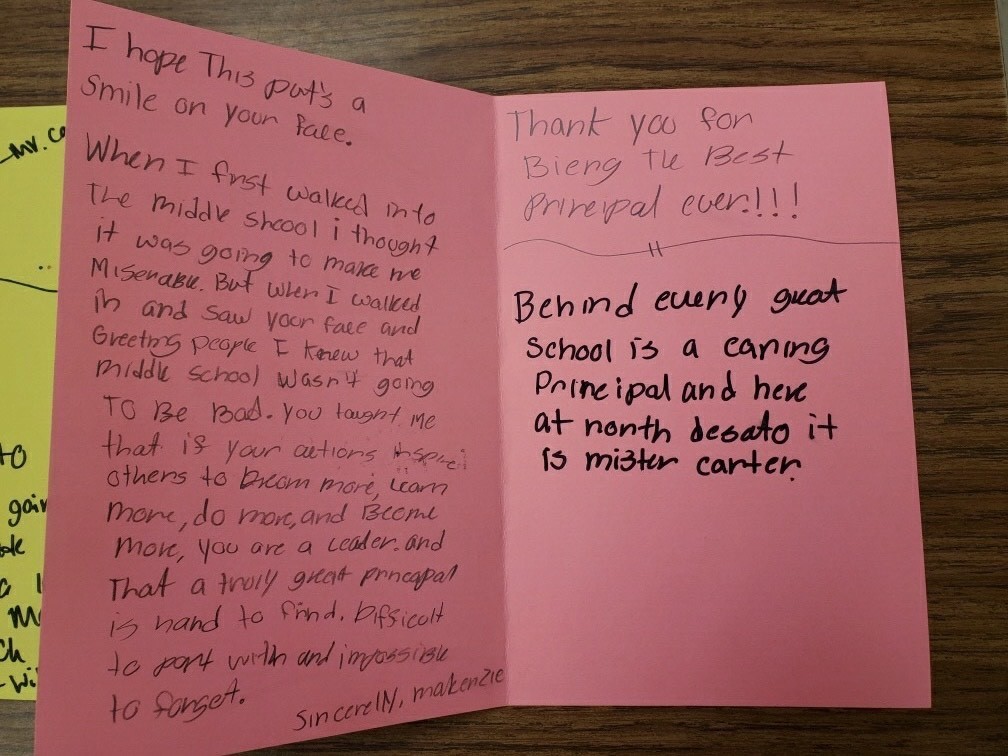 I hope This put's a
smile on your face.
When I first walked into
The middle shcool i thought
it was going to make me
Miserable. But when I walked
in and saw your face and
Greeting people I knew that
middle school wasn't going
TO Be Bad. you taught me
that if your actions inspire
others to Dream more, Learn
more, do more, and Become
more, you are a Leader. and
That a truly great princapal
is hard to find. Difficolt
to part with and impossible
to forget.
Sincerelly, makenzie
Thank you for
Bieng The Best
principal ever!!!
Behind every great
school is a caring
Principal and here
at north desoto it
is mister carter.
Mr. Ca
TO
goin
Mo
ch
-Wi